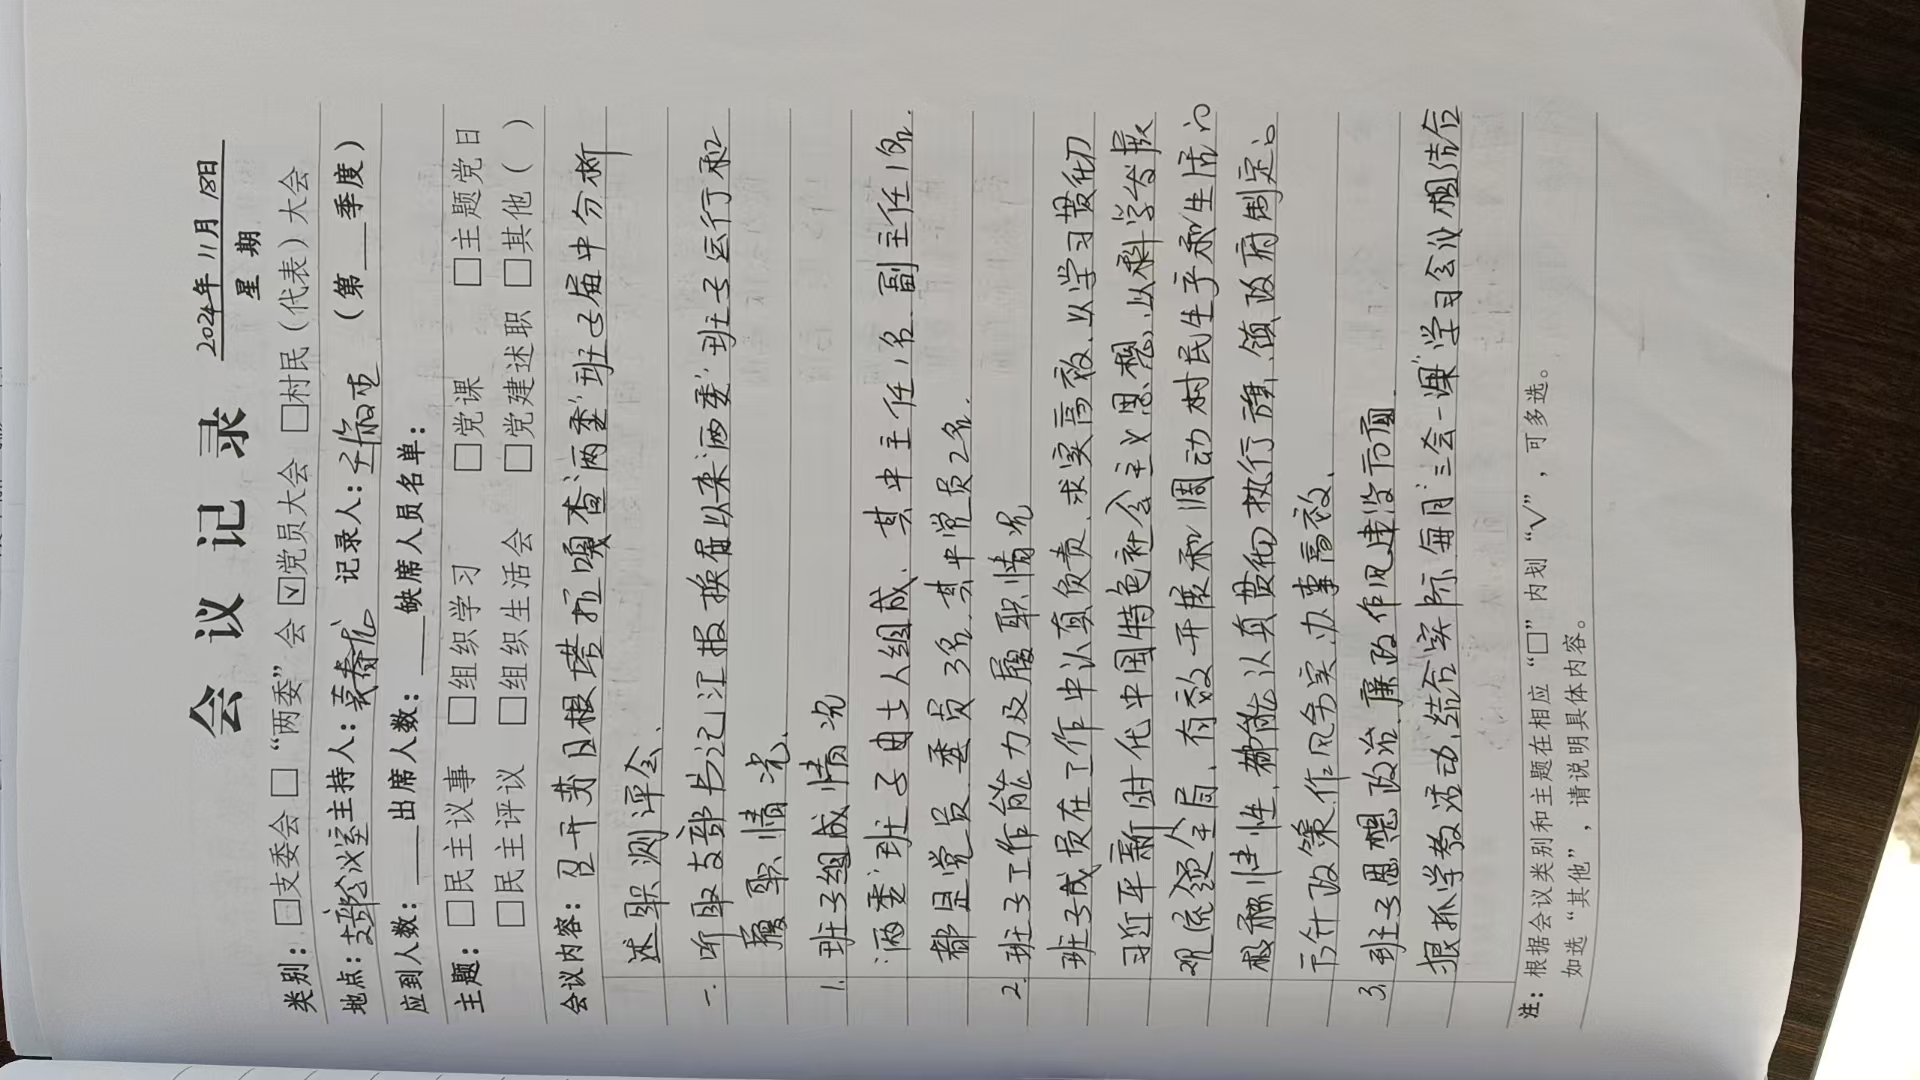 会议记录
2024年11月18日
星期
类别：□支委会 □“两委”会 ☑党员大会 □村民（代表）大会
地点：支部会议室 主持人： 记录人： （第 季度）
应到人数： 出席人数： 缺席人员名单：
主题：□民主议事 □组织学习 □党课 □主题党日
□民主评议 □组织生活会 □党建述职 □其他（ ）
会议内容：召开 根塔拉嘎查“两委”班子届中分析
述职测评会、
一. 听取支部书记汇报换届以来“两委”班子运行和
履职情况、
1. 班子组成情况
“两委”班子由七人组成、其中主任1名、副主任1名、
都是党员、委员3名、其中党员2名、
2. 班子工作能力及履职情况
班子成员在工作中认真负责、求实高效、以学习贯彻
习近平新时代中国特色社会主义思想、以科学发展
观统领全局、有效开展和调动村民生产和生活的
积极性、都能认真贯彻执行旗、镇政府制定的
方针政策、作风务实、办事高效、
3. 班子思想政治、廉政作风建设方面、
狠抓学教活动、结合实际、每月“三会一课”学习会议相结合
注：根据会议类别和主题在相应“□”内划“√”，可多选。
如选“其他”，请说明具体内容。